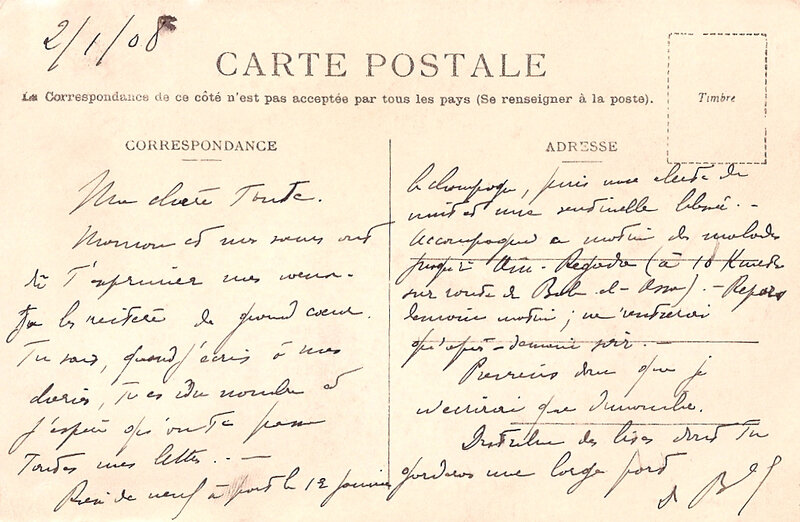 2/1/08
CARTE POSTALE
La Correspondance de ce côté n'est pas acceptée par tous les pays (Se renseigner à la poste).
Timbre
CORRESPONDANCE
Ma chère Tante.
Maman et mes sœurs ont
dû t'exprimer mes vœux.
Je les réitère de grand cœur.
Tu sais, quand j'écris à mes
chéries, tu es du nombre et
j'espère qu'on te passe
toutes mes lettres. . —
Rien de neuf à part le 1er janvier
ADRESSE
le champagne, puis une alerte de
nuit et une sentinelle blessée. -
Accompagné ce matin des malades
jusqu'à Aïn-Regada (à 10 Kmètres
sur route de Bab el-Assa). - Repars
demain matin; ne rentrerai
qu'après-demain soir. —
Préviens donc que je
n'écrirai que dimanche.
Distribue des bises dont tu
garderas une large part